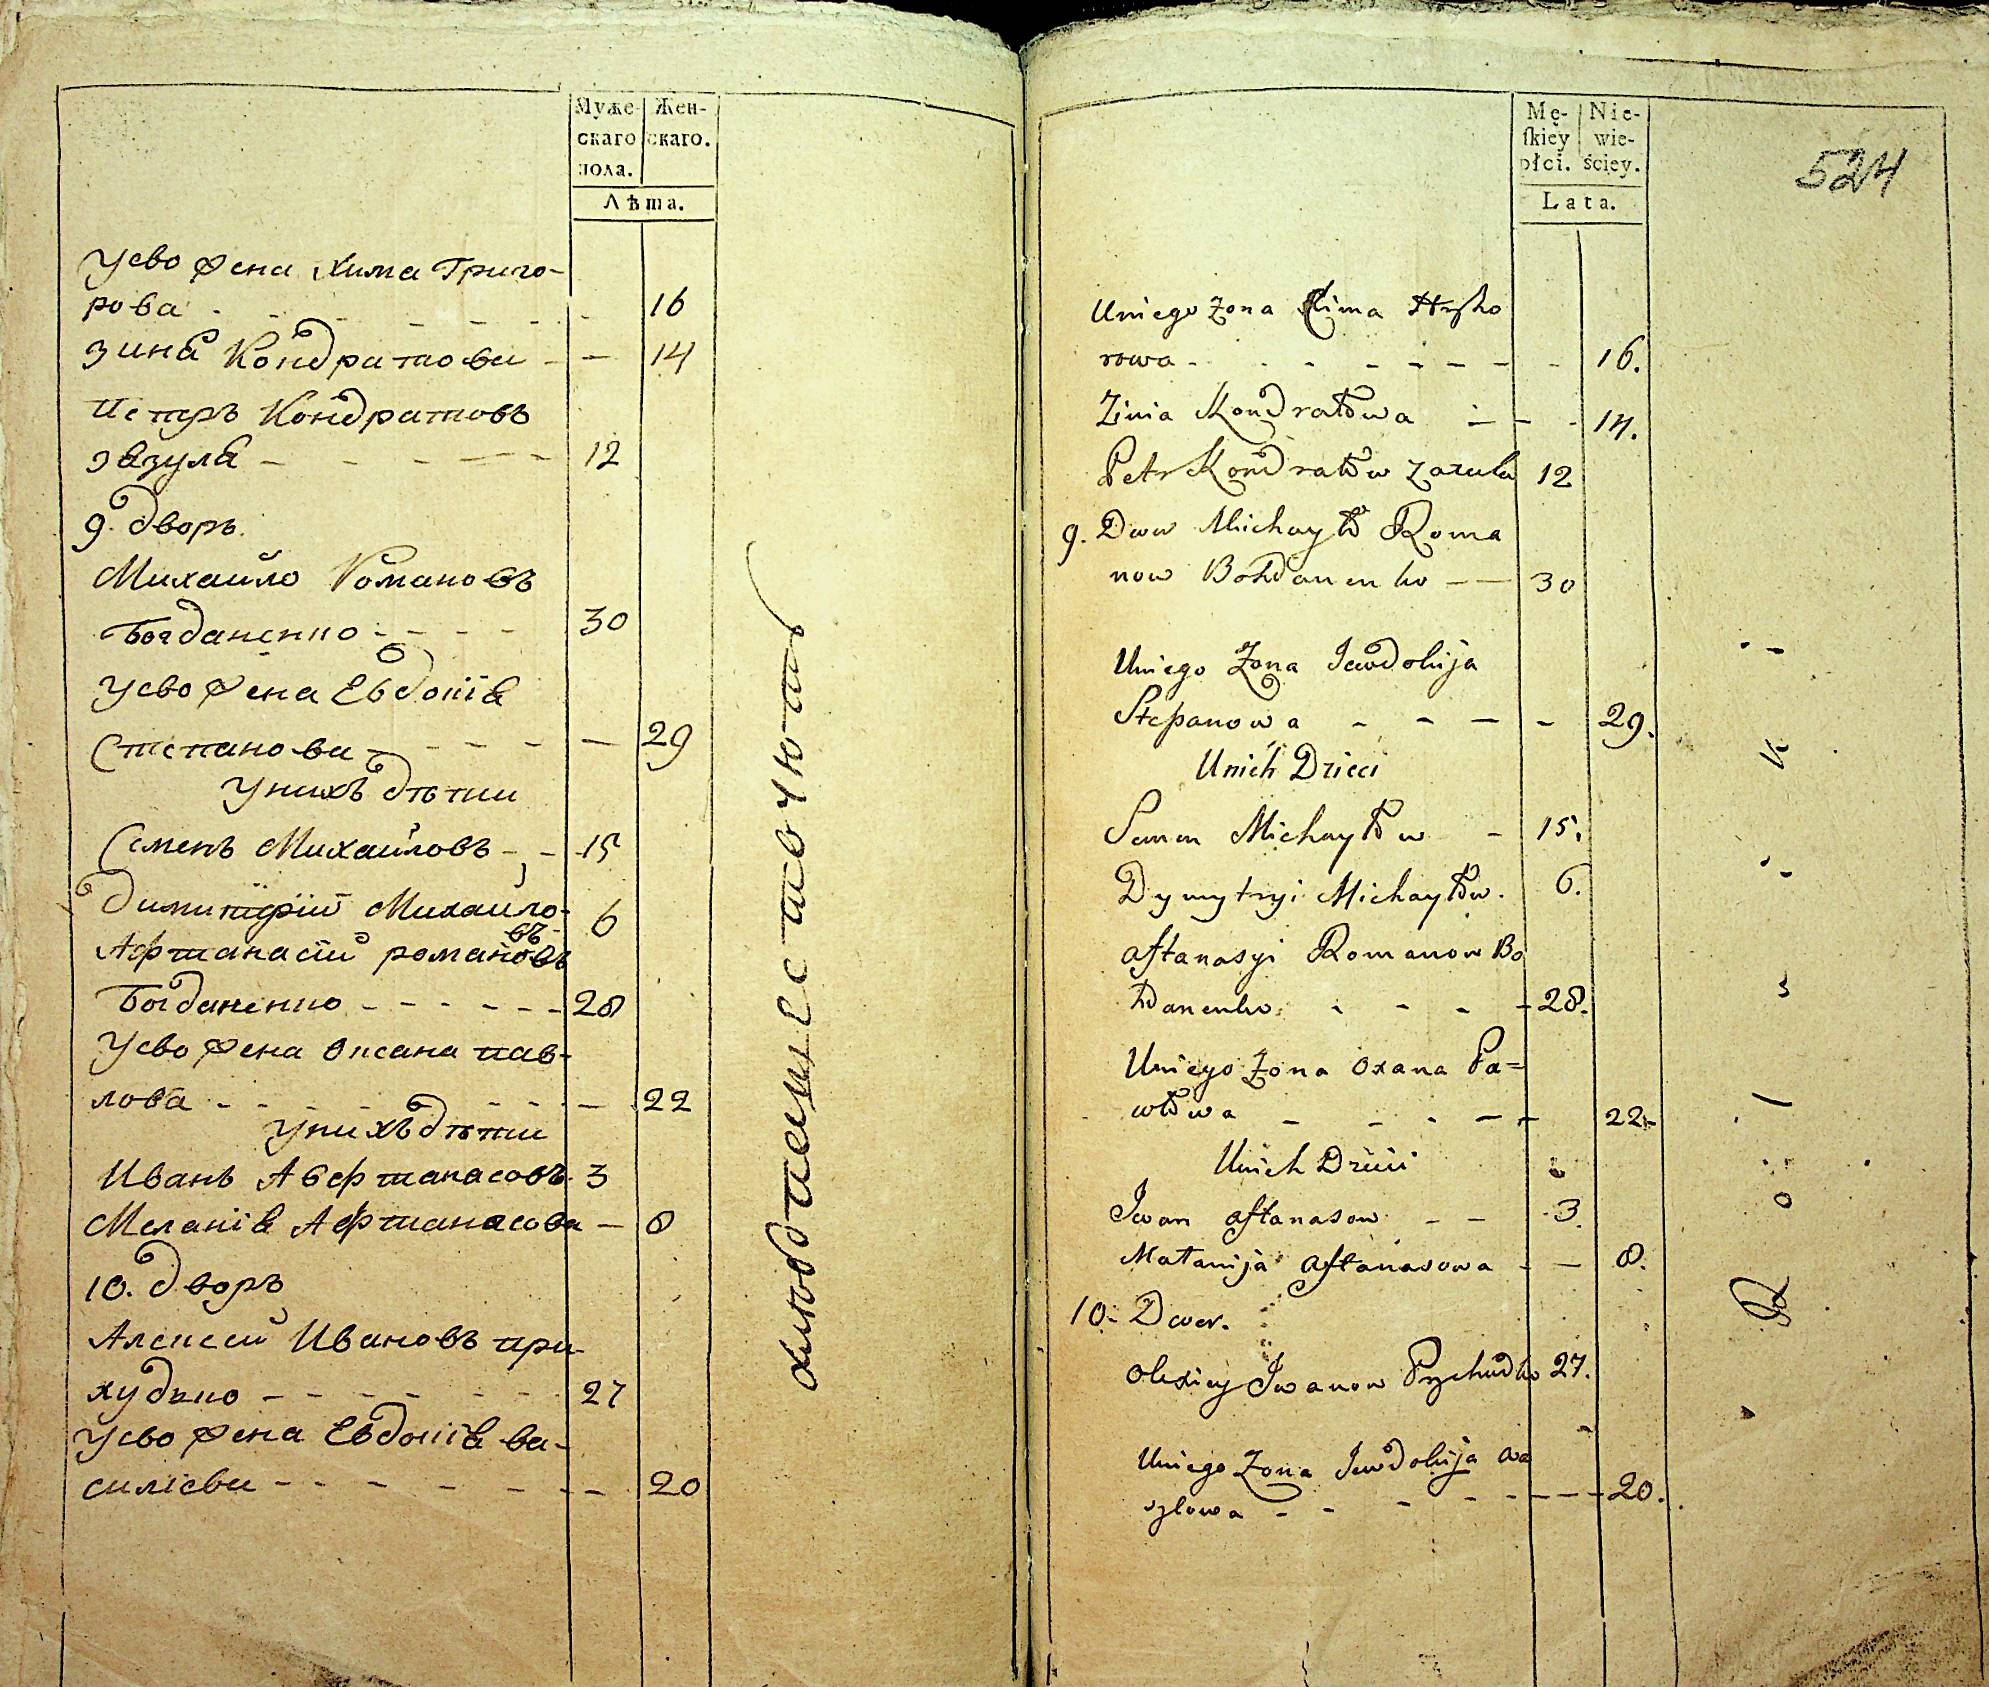 Муже- Жен-
скаго скаго.
пола.
Лѣта.
Усво жена Хима Григо-
рова - - - - - - 16
Зинa Кондратова - - 14
Петръ Кондратовъ
Зазуля - - - - - 12
9. дворъ.
Михайло Романовъ
Богданенко - - - - 30
Усво жена Евдокія
Степанова - - - - - 29
Унихъ дѣти
Семенъ Михайловъ - - 15
Димитрій Михайло-
въ - 6
Афтанасій романовъ
Богданенко - - - - - - 28
Усво жена Оксана пав-
лова - - - - - - - 22
Унихъ дѣти
Иванъ Афтанасовъ. 3
Меланія Афтанасова - 8
10. дворъ
Алексей Ивановъ при-
худко - - - - - - 27
Усво жена Евдокія ва-
силіева - - - - - - - 20
Mę- Nie-
ſkiey wie-
płci. ściey.
Lata.
524
Uniego Zona Chima Hryho
rowa - - - - - - - 16.
Zinia Kondratowa - - - 14.
Petr Kondratow Zazula 12
9. Dwor Michayło Roma
now Bohdanenko - - 30
Uniego Zona Jewdokija
Stepanowa - - - - 29.
Unich Dzieci
Semen Michayłow - 15.
Dymytryi Michayłow. 6.
Aftanasyi Romanow Bo
hdanenko. - - - - 28.
Uniego Zona Oxana Pa=
włowa - - - - - 22.
Unich Dzieci
Iwan Aftanasow - - 3.
Małanija Aftanasowa - - 8.
10. Dwor.
Olexiey Iwanow Prychudko 27.
Uniego Zona Jewdokija Wa
sylowa - - - - - - - 20.